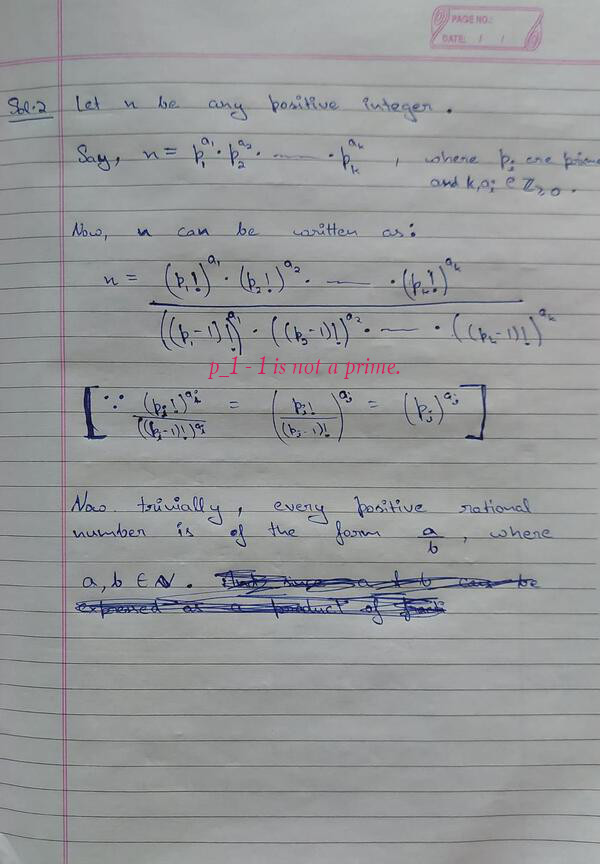 PAGE NO.:
DATE: / /
Sol.2 Let n be any positive integer.
Say, n = p_1^{a_1} · p_2^{a_2} · — · p_k^{a_k} , where p_j are prime
and k, a_j ∈ ℤ_{≥0}.
Now, n can be written as:
n = \frac{(p_1!)^{a_1} · (p_2!)^{a_2} · — · (p_k!)^{a_k}}{((p_1-1)!)^{a_1} · ((p_2-1)!)^{a_2} · — · ((p_k-1)!)^{a_k}}
p_1 - 1 is not a prime.
[∵ \frac{(p_j!)^{a_j}}{((p_j-1)!)^{a_j}} = (\frac{p_j!}{(p_j-1)!})^{a_j} = (p_j)^{a_j}]
Now trivially, every positive rational
number is of the form \frac{a}{b}, where
a, b ∈ ℕ.